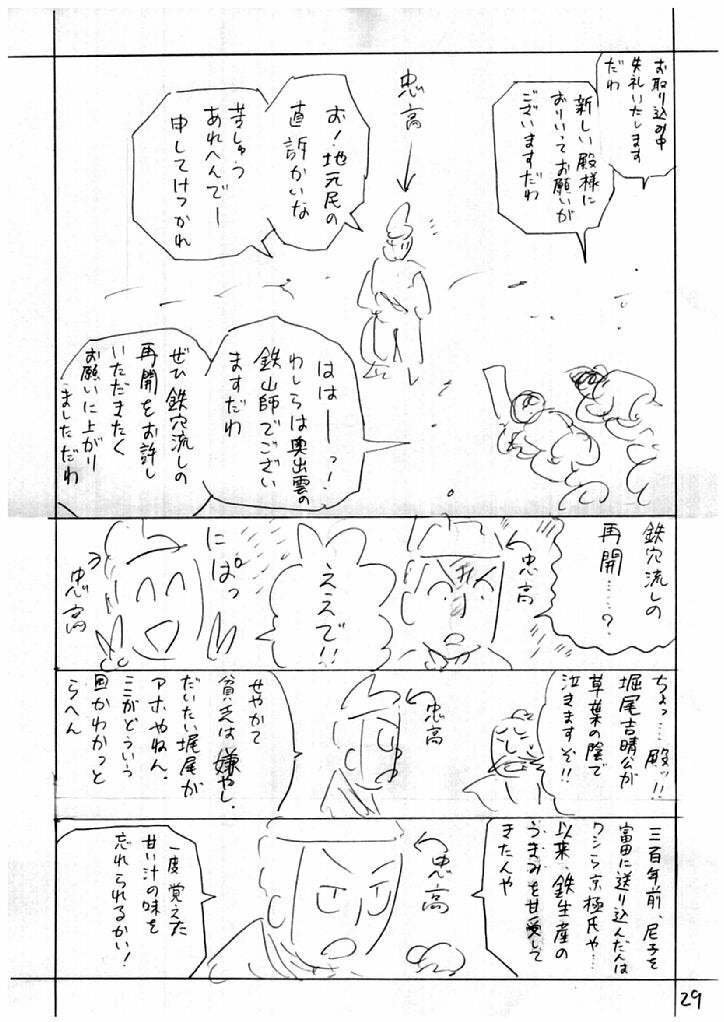 お取り込み中
失礼いたします
だわ
新しい殿様に
おりいってお願いが
ございますだわ
忠高
お！地元民の
直訴かいな
苦しゅう
あれへんでー
申してけつかれ
ははーっ！
わしらは奥出雲の
鉄山師でござい
ますだわ
ぜひ鉄穴流しの
再開をお許し
いただきたく
お願いに上がり
ましただわ
鉄穴流しの
再開……？
忠高
ええで!!
にぱっ
忠高
ちょっ……殿ッ!!
堀尾吉晴公が
草葉の陰で
泣きますぞ!!
忠高
せやかて
貧乏は嫌やし、
だいたい堀尾が
アホやねん、
ここがどういう
国かわかっと
らへん
三百年前、尼子を
富田に送り込んだんは
ワシら京極氏や…
以来、鉄生産の
うまみを甘受して
きたんや
忠高
一度覚えた
甘い汁の味を
忘れられるかい！
29